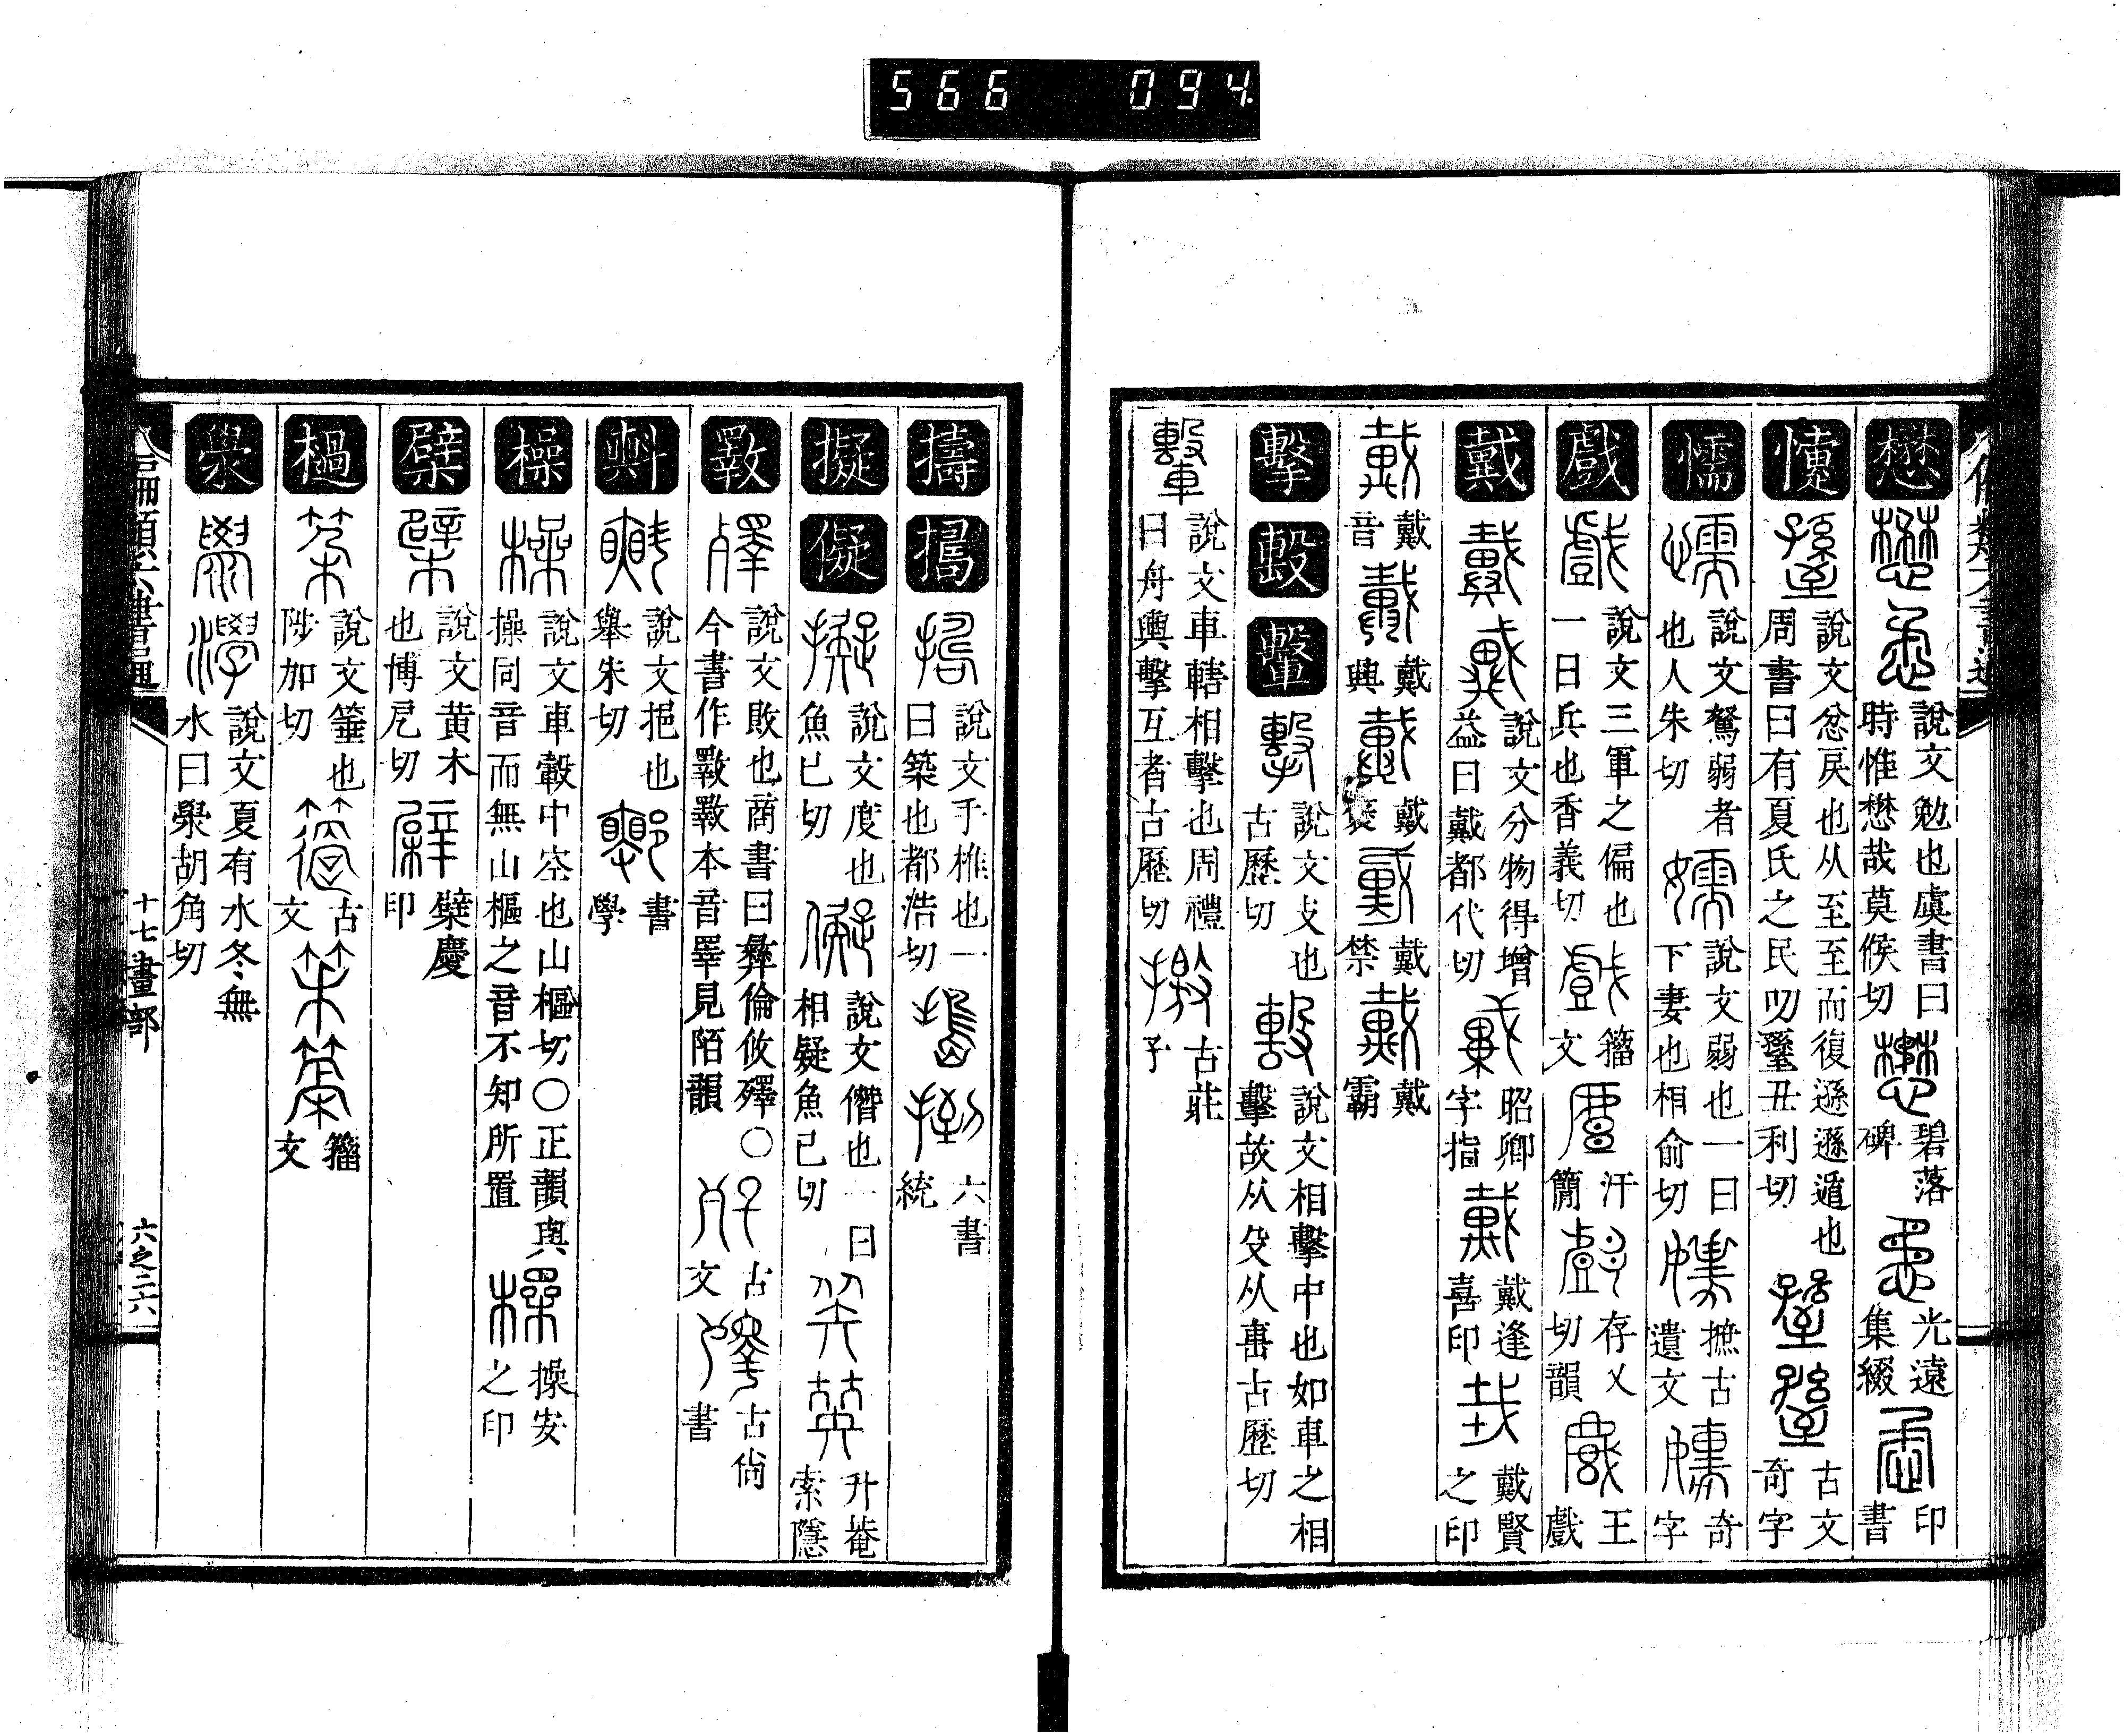 566 094
懋 說文勉也虞書曰時惟懋哉莫候切 碧落碑 光遠集綴 印書
懥 說文忿戾也从至至而復遜遜遁也周書曰有夏氏之民叨𦥎丑利切 古文奇字
懦 說文駑弱者也人朱切 說文弱也一曰下妻也相俞切 摭古遺文 奇字
戲 說文三軍之偏也一曰兵也香義切 籀文 汗簡 存乂切韻 王戲
戴 說文分物得增益曰戴都代切 昭卿字指 戴逢喜印 戴賢之印
戴音 戴興 戴 戴禁 戴霸
擊 毄 轚 說文攴也古歷切 說文相擊中也如車之相擊故从殳从軎古歷切
說文車轄相擊也周禮曰舟輿擊互者古歷切 古莊子
擣 搗 說文手椎也一曰築也都浩切 六書統
擬 儗 說文度也魚已切 說文僭也一曰相疑魚已切 升菴索隱
斁 說文敗也商書曰彝倫攸殬〇今書作斁斁本音睪見陌韻 古文 古尚書
㪺 說文挹也舉朱切 書學
橾 說文車轂中空也山樞切〇正韻與操同音而無山樞之音不知所置 操安之印
檗 說文黄木也博厄切 檗慶印
檛 說文箠也陟加切 古文 籀文
澩 說文夏有水冬無水曰澩胡角切
六書通
十七畫部
六之二六